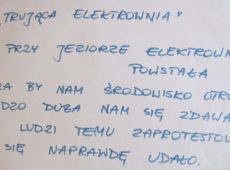 „TRUJĄCA ELEKTROWNIA"
PRZY JEZIORZE ELEKTROWN
POWSTAŁA
BY NAM ŚRODOWISKO OTRU
DUŻA NAM SIĘ ZDAWA
LUDZI TEMU ZAPROTESTOW
SIĘ NAPRAWDĘ UDAŁO.